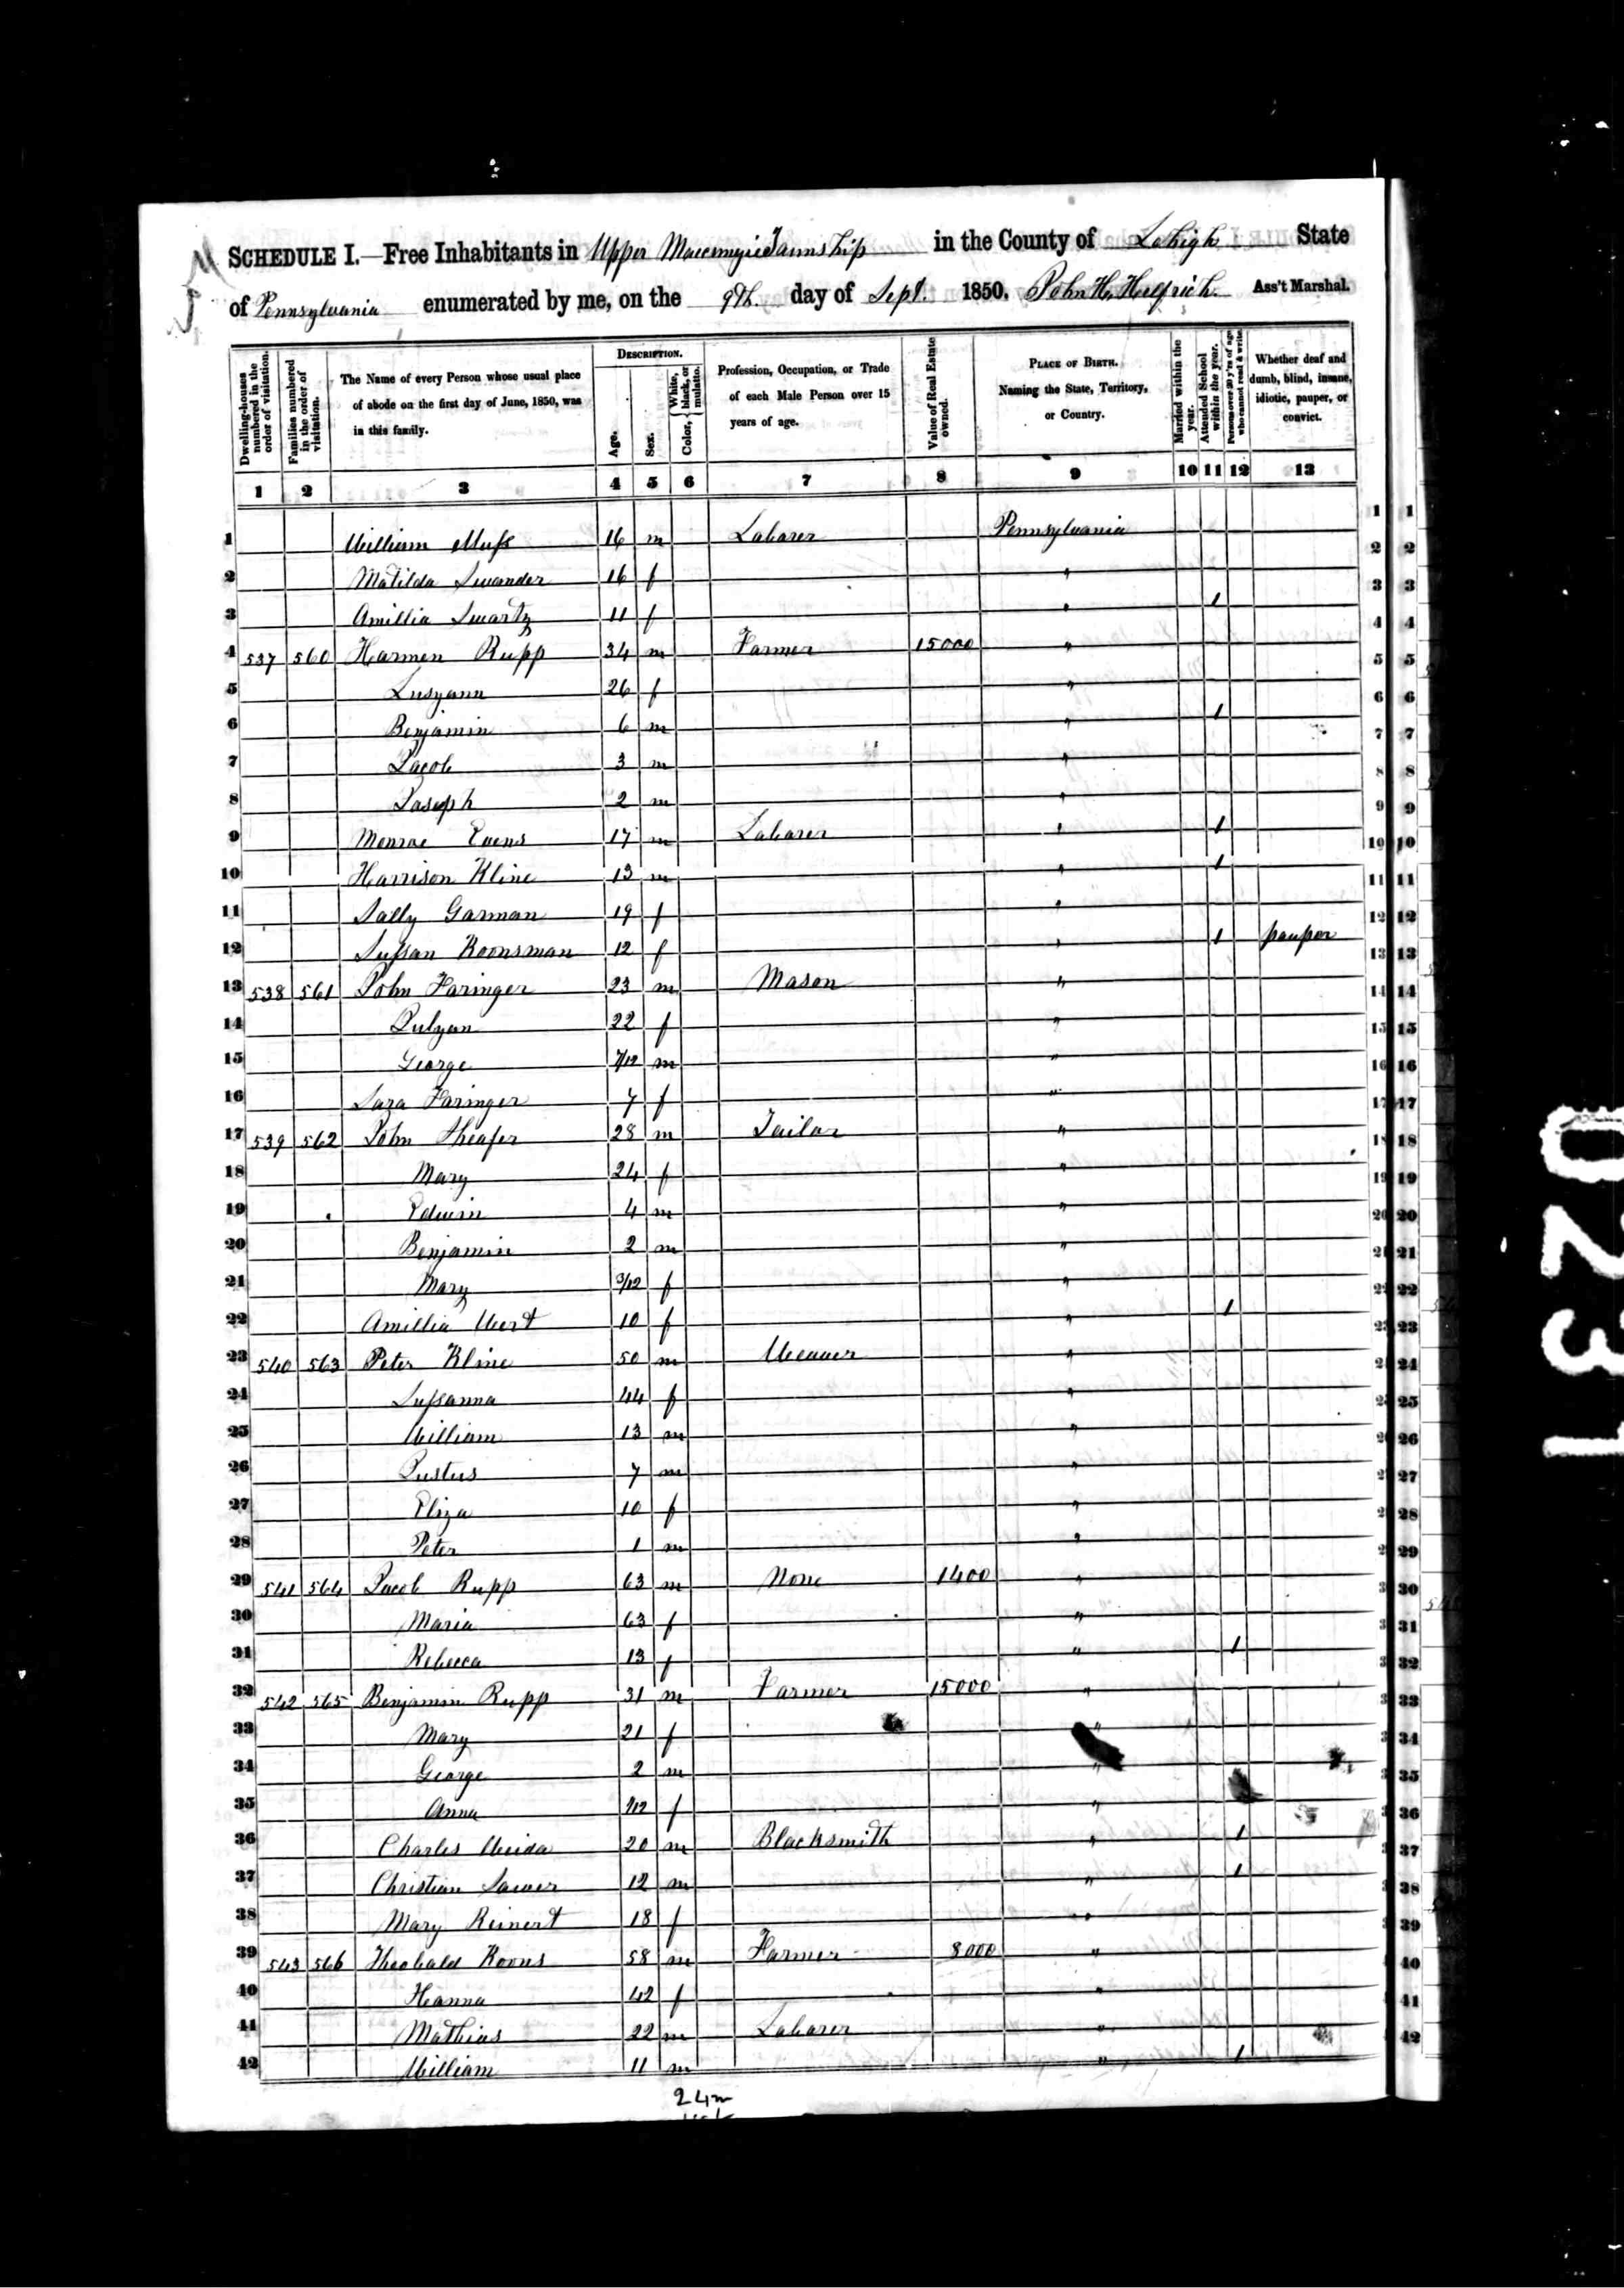 SCHEDULE I.—Free Inhabitants in Upper Maccungie Township in the County of Lehigh State
of Pennsylvania enumerated by me, on the 9th day of Sept. 1850. John H. Helfrich Ass't Marshal.
Dwelling-houses numbered in the order of visitation.
Families numbered in the order of visitation.
The Name of every Person whose usual place of abode on the first day of June, 1850, was in this family.
DESCRIPTION.
Age.
Sex.
Color, White, black, or mulatto.
Profession, Occupation, or Trade of each Male Person over 15 years of age.
Value of Real Estate owned.
PLACE OF BIRTH. Naming the State, Territory, or Country.
Married within the year.
Attended School within the year.
Persons over 20 y'rs of age who cannot read & write.
Whether deaf and dumb, blind, insane, idiotic, pauper, or convict.
1 2 3 4 5 6 7 8 9 10 11 12 13
1 William 16 m Labarer Pennsylvania 1 1
2 Matilda Swander 16 f " 2 2
3 Amillia Swartz 11 f " 1 3 3
4 537 560 Harmen Rupp 34 m Farmer 15000 " 4 4
5 Lusyann 26 f " 5 5
6 Benjamin 6 m " 1 6 6
7 Jacob 3 m " 7 7
8 Joseph 2 m " 8 8
9 Monroe Evens 17 m Labarer " 1 9 9
10 Harrison Kline 13 m " 1 10 10
11 Sally Garman 19 f " 11 11
12 Sussan Koonsman 12 f " 1 pauper 12 12
13 538 561 John Haringer 23 m Mason " 13 13
14 Julyan 22 f " 14 14
15 George 7/12 m " 15 15
16 Sara Haringer 7 f " 16 16
17 539 562 John Sheafer 28 m Tailar " 17 17
18 Mary 24 f " 18 18
19 Edwin 4 m " 19 19
20 Benjamin 2 m " 20 20
21 Mary 3/12 f " 21 21
22 Amillia Wert 10 f " 1 22 22
23 540 563 Peter Kline 50 m Weaver " 23 23
24 Sussanna 44 f " 24
25 William 13 m " 25
26 Justus 7 m " 26
27 Eliza 10 f " 27
28 Peter 1 m " 28
29 541 564 Jacob Rupp 63 m None 1400 " 29
30 Maria 63 f " 30
31 Rebecca 13 f " 1 31
32 542 565 Benjamin Rupp 31 m Farmer 15000 " 32
33 Mary 21 f " 33
34 George 2 m " 34
35 Anna /12 f " 35
36 Charles Weida 20 m Blacksmith " 1 36
37 Christian 12 m " 1 37
38 Mary Reinert 18 f " 38
39 543 566 Theobald Koons 58 m Farmer 8000 " 39
40 Hanna 42 f " 40
41 Mathias 22 m Labarer " 41
42 William 11 m " 1 42
24m
0231